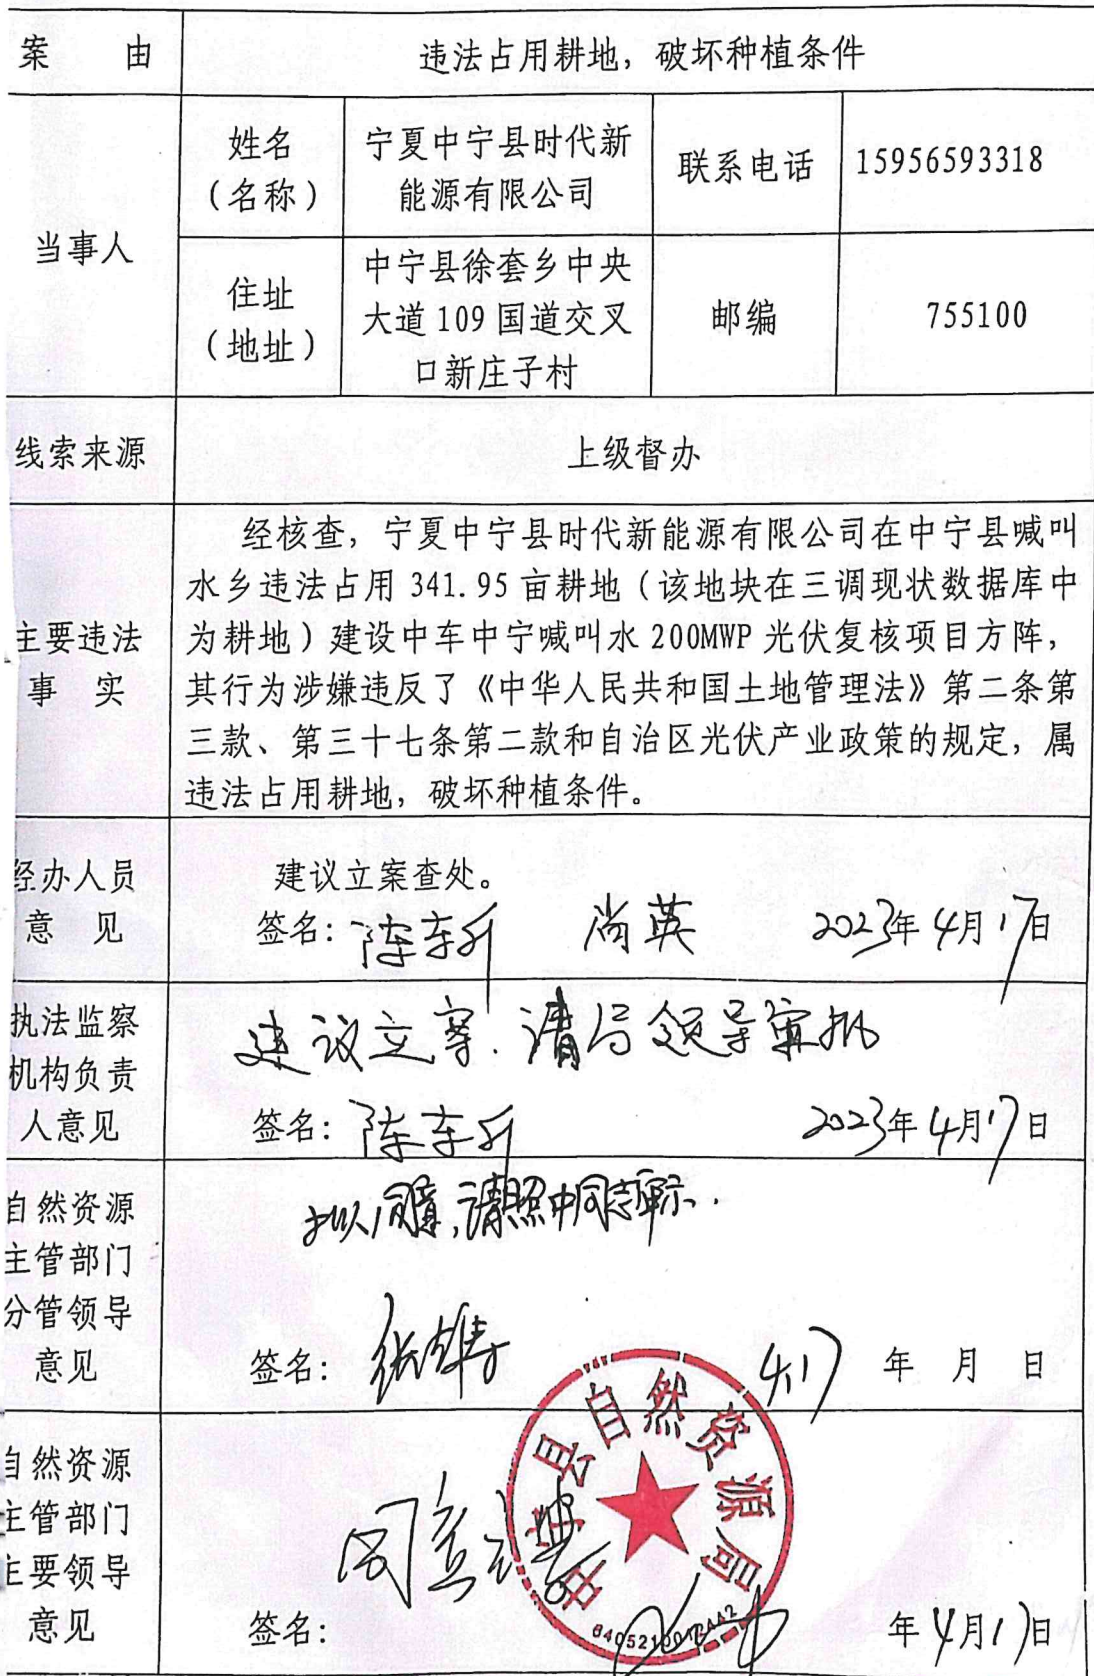 案 由 违法占用耕地，破坏种植条件
当事人
姓名
（名称）
宁夏中宁县时代新
能源有限公司
联系电话 15956593318
住址
（地址）
中宁县徐套乡中央
大道 109 国道交叉
口新庄子村
邮编 755100
线索来源 上级督办
主要违法
事 实
经核查，宁夏中宁县时代新能源有限公司在中宁县喊叫
水乡违法占用 341.95 亩耕地（该地块在三调现状数据库中
为耕地）建设中车中宁喊叫水 200MWP 光伏复核项目方阵，
其行为涉嫌违反了《中华人民共和国土地管理法》第二条第
三款、第三十七条第二款和自治区光伏产业政策的规定，属
违法占用耕地，破坏种植条件。
经办人员
意 见
建议立案查处。
签名：陈东升 尚英 2023年4月17日
执法监察
机构负责
人意见
建议立案.请局领导审批
签名：陈东升 2023年4月17日
自然资源
主管部门
分管领导
意见
拟同意,请照中同志审示.
签名：张雄 4.17 年 月 日
自然资源
主管部门
主要领导
意见
同意
签名： 年4月17日
中宁县自然资源局